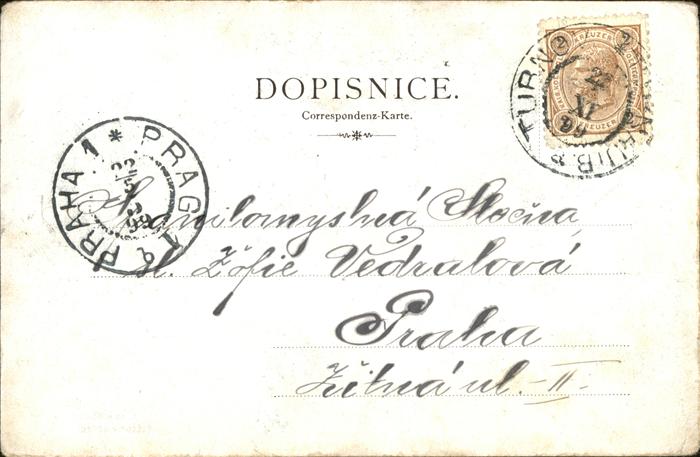 DOPISNICE.
Correspondenz-Karte.
TURN
22
XI
99
2 KREUZER 2
PRAHA 1 * PRAG 1
Slečna
sl. Žofie Vedralová
Praha
Žitná ul. - II.